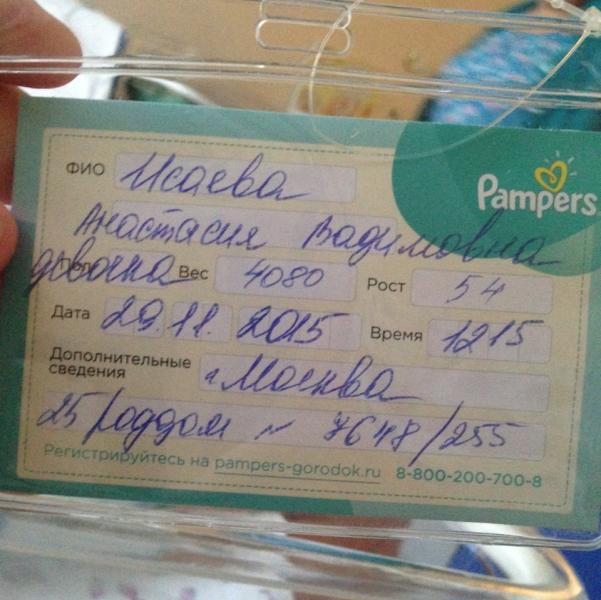 ФИО Исаева
Pampers
Анастасия Вадимовна
девочка Вес 4080 Рост 54
Дата 29.11. 2015 Время 1215
Дополнительные сведения г. Москва
25 роддом № 7648/255
Регистрируйтесь на pampers-gorodok.ru 8-800-200-700-8